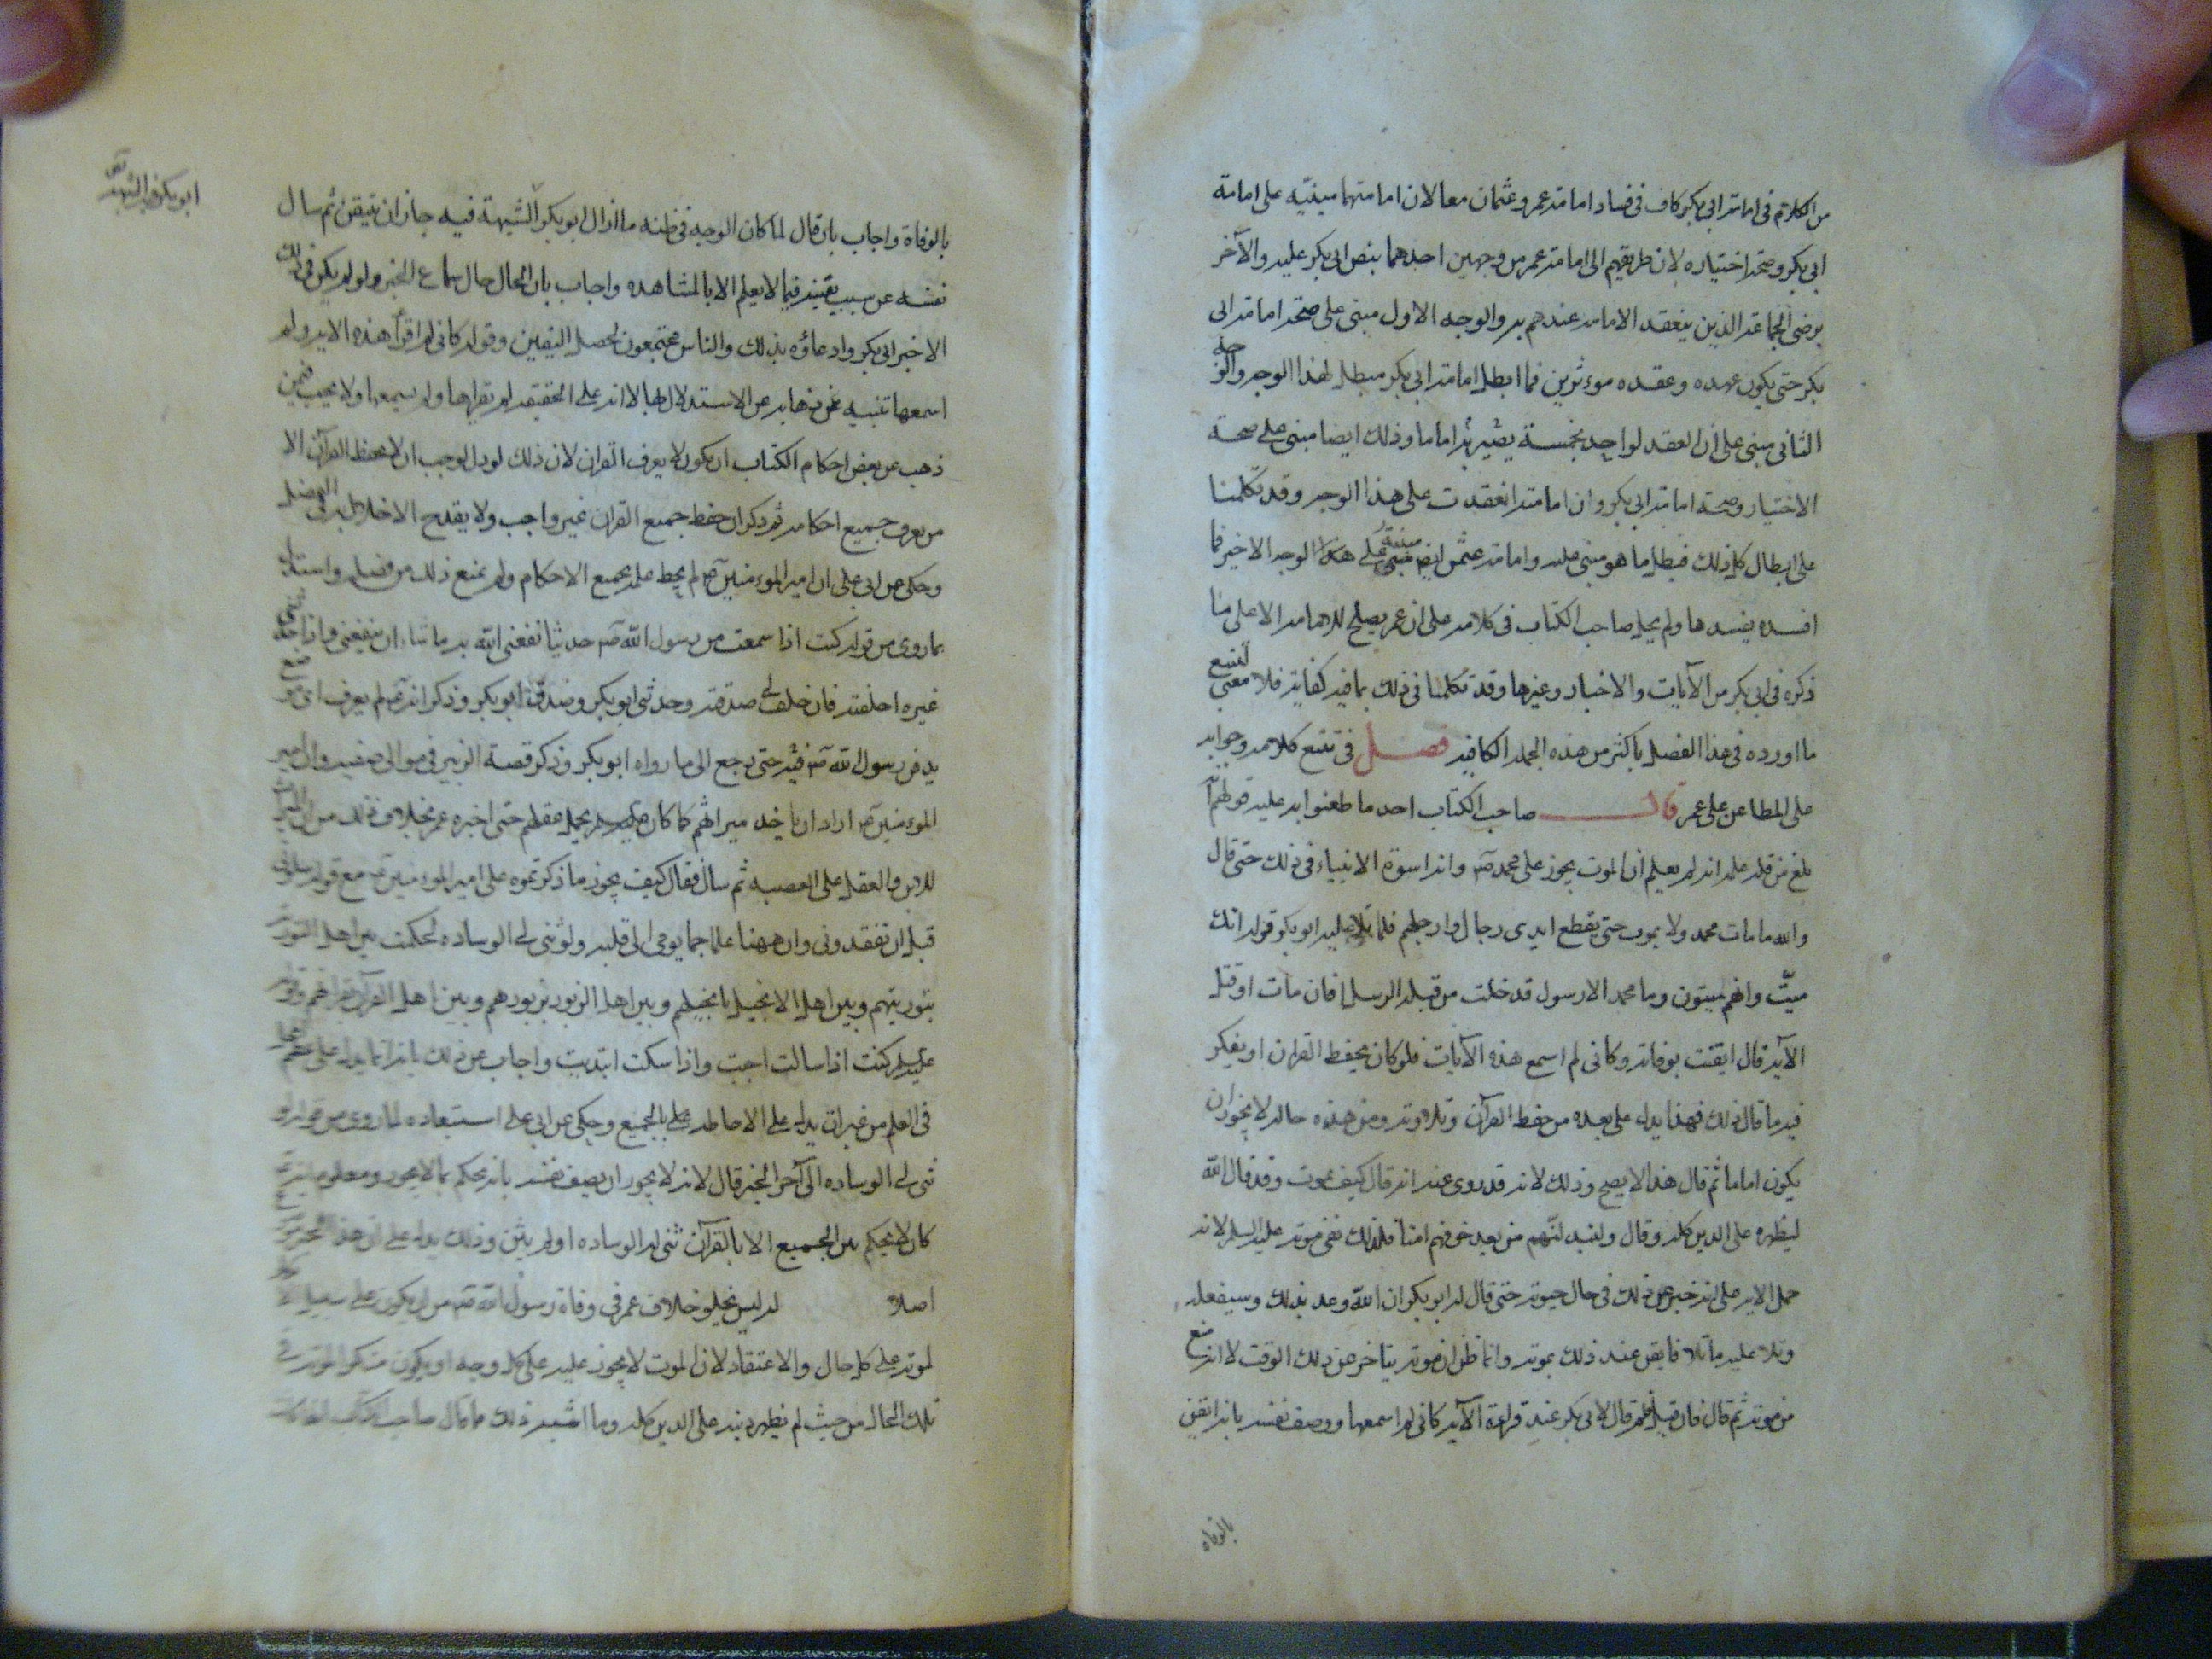 من الكلام فى امامة ابى بكر كاف فى فساد امامة عمر وعثمان معا لان امامتهما مبنيّه على امامة
ابى بكر وصحة اختياره لان طريقهم الى امامة عمر من وجهين احدهما بنص ابى بكر عليه والآخر
برضى الجماعة الذين ينعقد الامامة عندهم به والوجه الاول مبنى على صحة امامة ابى
بكر حتى يكون عهده وعقده موءثرين فما ابطل امامة ابى بكر مبطل لهذا الوجه والوجه
الثانى مبنى على ان العقد لواحد بخمسة يصير به اماما وذلك ايضا مبنى على صحة
الاختيار وصحة امامة ابى بكر وان امامته انعقدت على هذا الوجه وقد تكلمنا
على ابطال كل ذلك فبطل ما هو مبنى عليه وامامة عثمن ايضا مبنية على هذا الوجه الاخير فما
افسده يفسدها ولم يحل صاحب الكتاب فى كلامه على ان عمر يصلح للامامة الا على ما
ذكره فى ابى بكر من الآيات والاخبار وغيرها وقد تكلمنا فى ذلك بما فيه كفاية فلا معنى لتتبع
ما اورده فى هذا الفصل باكثر من هذه الجملة الكافية فصل فى تتبع كلامه وجوابه
على المطاعن على عمر قال صاحب الكتاب احد ما طعنوا به عليه قولهم انه
بلغ من قلة علمه انه لم يعلم ان الموت يجوز على محمد صم وانه اسوة الانبياء فى ذلك حتى قال
والله ما مات محمد ولا يموت حتى يقطع ايدى رجال وارجلهم فلما تلا عليه ابو بكر قوله انك
ميّت وانهم ميتون وما محمد الا رسول قد خلت من قبله الرسل افان مات او قتل
الآية قال ايقنت بوفاته وكانى لم اسمع هذه الآيات فلو كان يحفظ القران او يفكر
فيه ما قال ذلك فهذا يدل على بعده من حفظ القرآن وتلاوته ومن هذه حاله لا يجوز ان
يكون اماما ثم قال هذا لا يصح وذلك لانه قد روى عنه انه قال كيف يموت وقد قال الله
ليظهره على الدين كله وقال وليبدلنّهم من بعد خوفهم امنا فلذلك نفى موته عليه السلم لانه
حمل الاية على انه خبر عن ذلك فى حال حيوته حتى قال له ابو بكر ان الله وعد بذلك وسيفعله
وتلا عليه ما تلا فايقن عند ذلك بموته وانما ظن ان موته يتاخر عن ذلك الوقت لا انه منع
من موته ثم قال فان قيل فلم قال لابى بكر عند قراءة الآية كانى لم اسمعها ووصف نفسه بانه ايقن
بالوفاة
بالوفاة واجاب بان قال لما كان الوجه فى ظنه ما ازال ابو بكر الشبهة فيه جاز ان يتيقن ثم سال
نفسه عن سبب يقينه فيما لا يعلم الا بالمشاهده واجاب بان الحال حال سماع الخبر ولو لم يكن فى ذلك
الا خبر ابى بكر وادعاؤه بذلك والناس مجتمعون لحصل اليقين وقوله كانى لم اقرأ هذه الاية ولم
اسمعها تنبيه عن ذهابه عن الاستدلال بها لا انه على الحقيقة لم يقراها ولم يسمعها ولا يجب فيمن
ذهب عن بعض احكام الكتاب ان يكون لا يعرف القران لان ذلك لو دل لوجب ان لا يحفظ القرآن الا
من يعرف جميع احكامه ثم ذكر ان حفظ جميع القران غير واجب ولا يقدح الاخلال به فى الفضل
وحكى عن ابى على ان امير الموءمنين ع لم يحط علمه بجميع الاحكام ولم يمنع ذلك من فضله واستدل
بما روى من قوله كنت اذا سمعت من رسول الله صم حديثا نفعنى الله به ما شاء ان ينفعنى واذا حدثنى
غيره احلفته فان حلف لى صدقته وحدثنى ابو بكر وصدق ابو بكر وذكر انه لم يعرف اى موضع
يدفن رسول الله صم فيه حتى رجع الى ما رواه ابو بكر وذكر قصة الزبير فى موالى صفيه وان امير
الموءمنين ع اراد ان ياخذ ميراثهم كما كان عليه السلم يحمل عقلهم حتى اخبره عمر بخلاف ذلك من ان الميراث
للابن والعقل على العصبه ثم سال فقال كيف يجوز ما ذكرتموه على امير الموءمنين ع مع قوله سلونى
قبل ان تفقدونى وان ههنا علما جما يومى الى قلبه ولو ثنى لى الوساده لحكمت بين اهل التورية
بتوريتهم وبين اهل الانجيل بانجيلهم وبين اهل الزبور بزبورهم وبين اهل القرآن بقرآنهم وقوله
عليه السلم كنت اذا سالت اجبت واذا سكت ابتديت واجاب عن ذلك بانه انما يدل على عظم المحل
فى العلم من غير ان يدل على الاحاطة بالجميع وحكى عن ابى على استبعاده لما روى من قوله لو
ثنى لى الوساده الى آخر الخبر قال لانه لا يجوز ان يصف نفسه بانه يحكم بما لا يجوز ومعلوم انه
كان لا يحكم بين الجميع الا بالقرآن ثنى له الوساده او لم يثن وذلك يدل على ان هذا الخبر
اصلا له ليس يخلو خلاف عمر فى وفاة رسول الله صم من ان يكون على سبيل
لموته على كل حال والاعتقاد لان الموت لا يجوز عليه على كل وجه او يكون منكرا لموته فى
تلك الحال من حيث لم يظهر دينه على الدين كله وما اشبه ذلك مما قال صاحب الكتاب